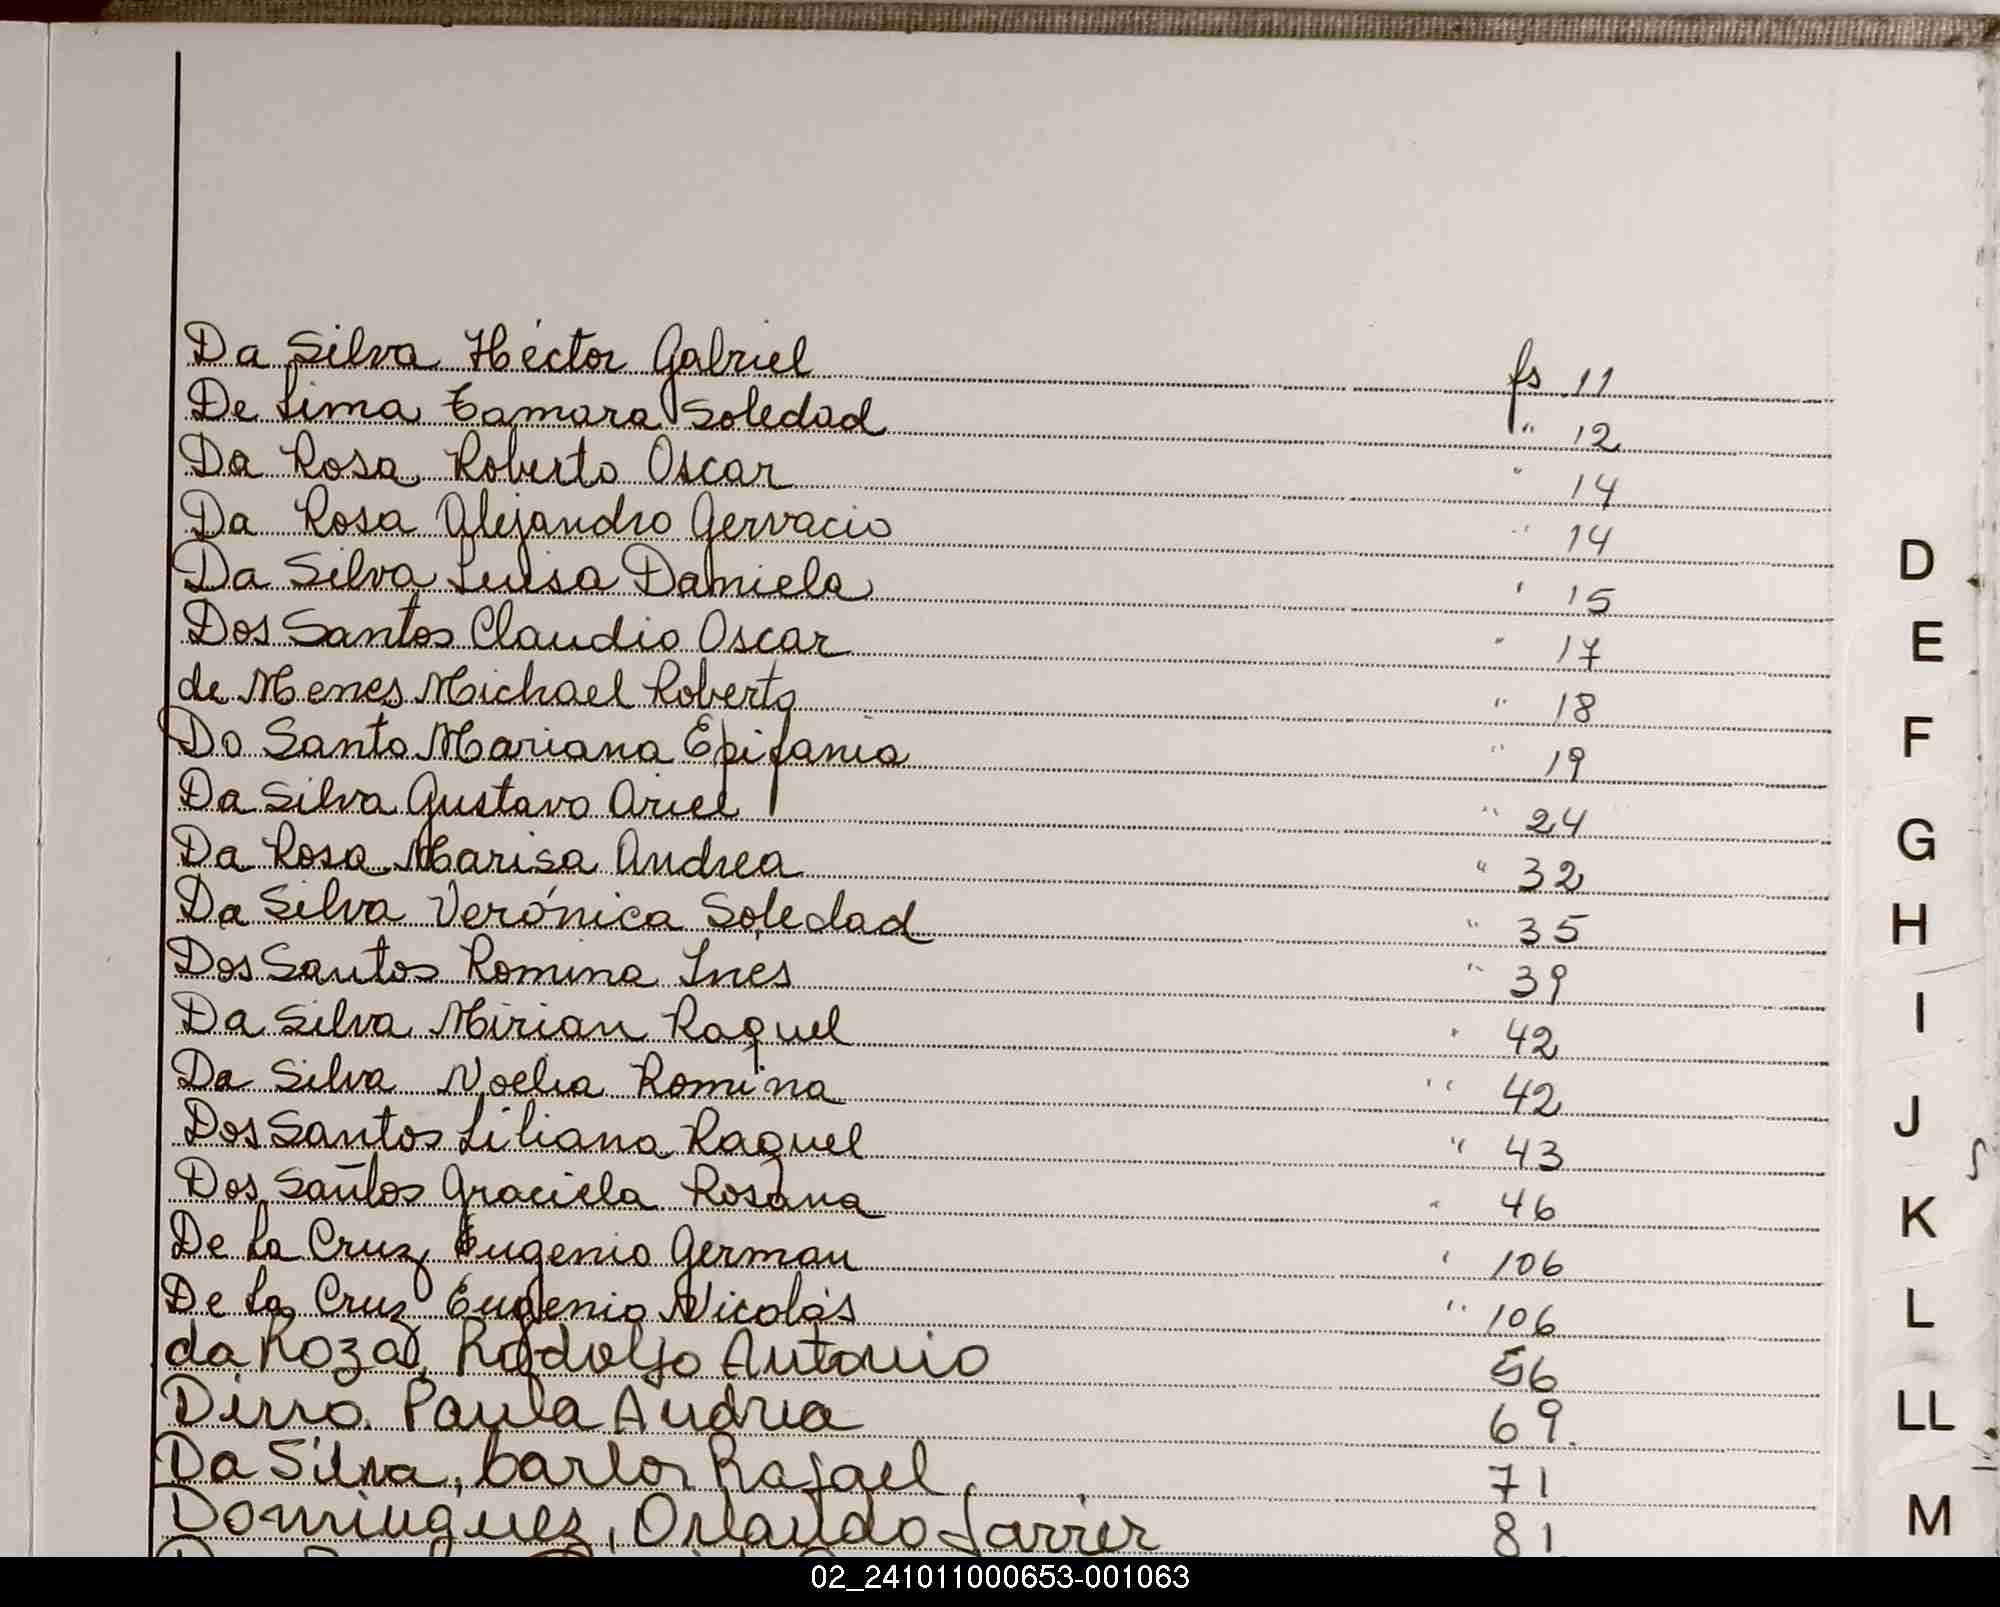 Da Silva Héctor Gabriel fs 11
De Lima Tamara Soledad " 12
Da Rosa Roberto Oscar " 14
Da Rosa Alejandro Gervacio " 14
Da Silva Luisa Daniela " 15
Dos Santos Claudio Oscar " 17
de Menes Michael Roberto " 18
Do Santo Mariana Epifania " 19
Da Silva Gustavo Ariel " 24
Da Rosa Marisa Andrea " 32
Da Silva Verónica Soledad " 35
Dos Santos Romina Ines " 39
Da Silva Mirian Raquel " 42
Da Silva Noelia Romina " 42
Dos Santos Liliana Raquel " 43
Dos Santos Graciela Rosana " 46
De La Cruz Eugenio German " 106
De La Cruz Eugenio Nicolás " 106
da Roza, Rodolfo Antonio 56
Dirro Paula Andrea 69.
Da Silva, Carlos Rafael 71
Dominguez, Orlando Javier 81
D
E
F
G
H
I
J
K
L
LL
M
02_241011000653-001063